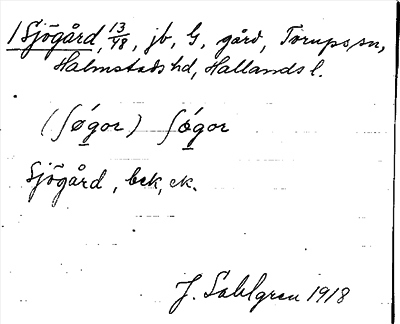 1 Sjögård, 13/48, jb, G, gård, Torups sn,
Halmstads hd, Hallands l.
(ʃǿgor) ʃǿgor
Sjögård, bek, ek.
J. Sahlgren 1918